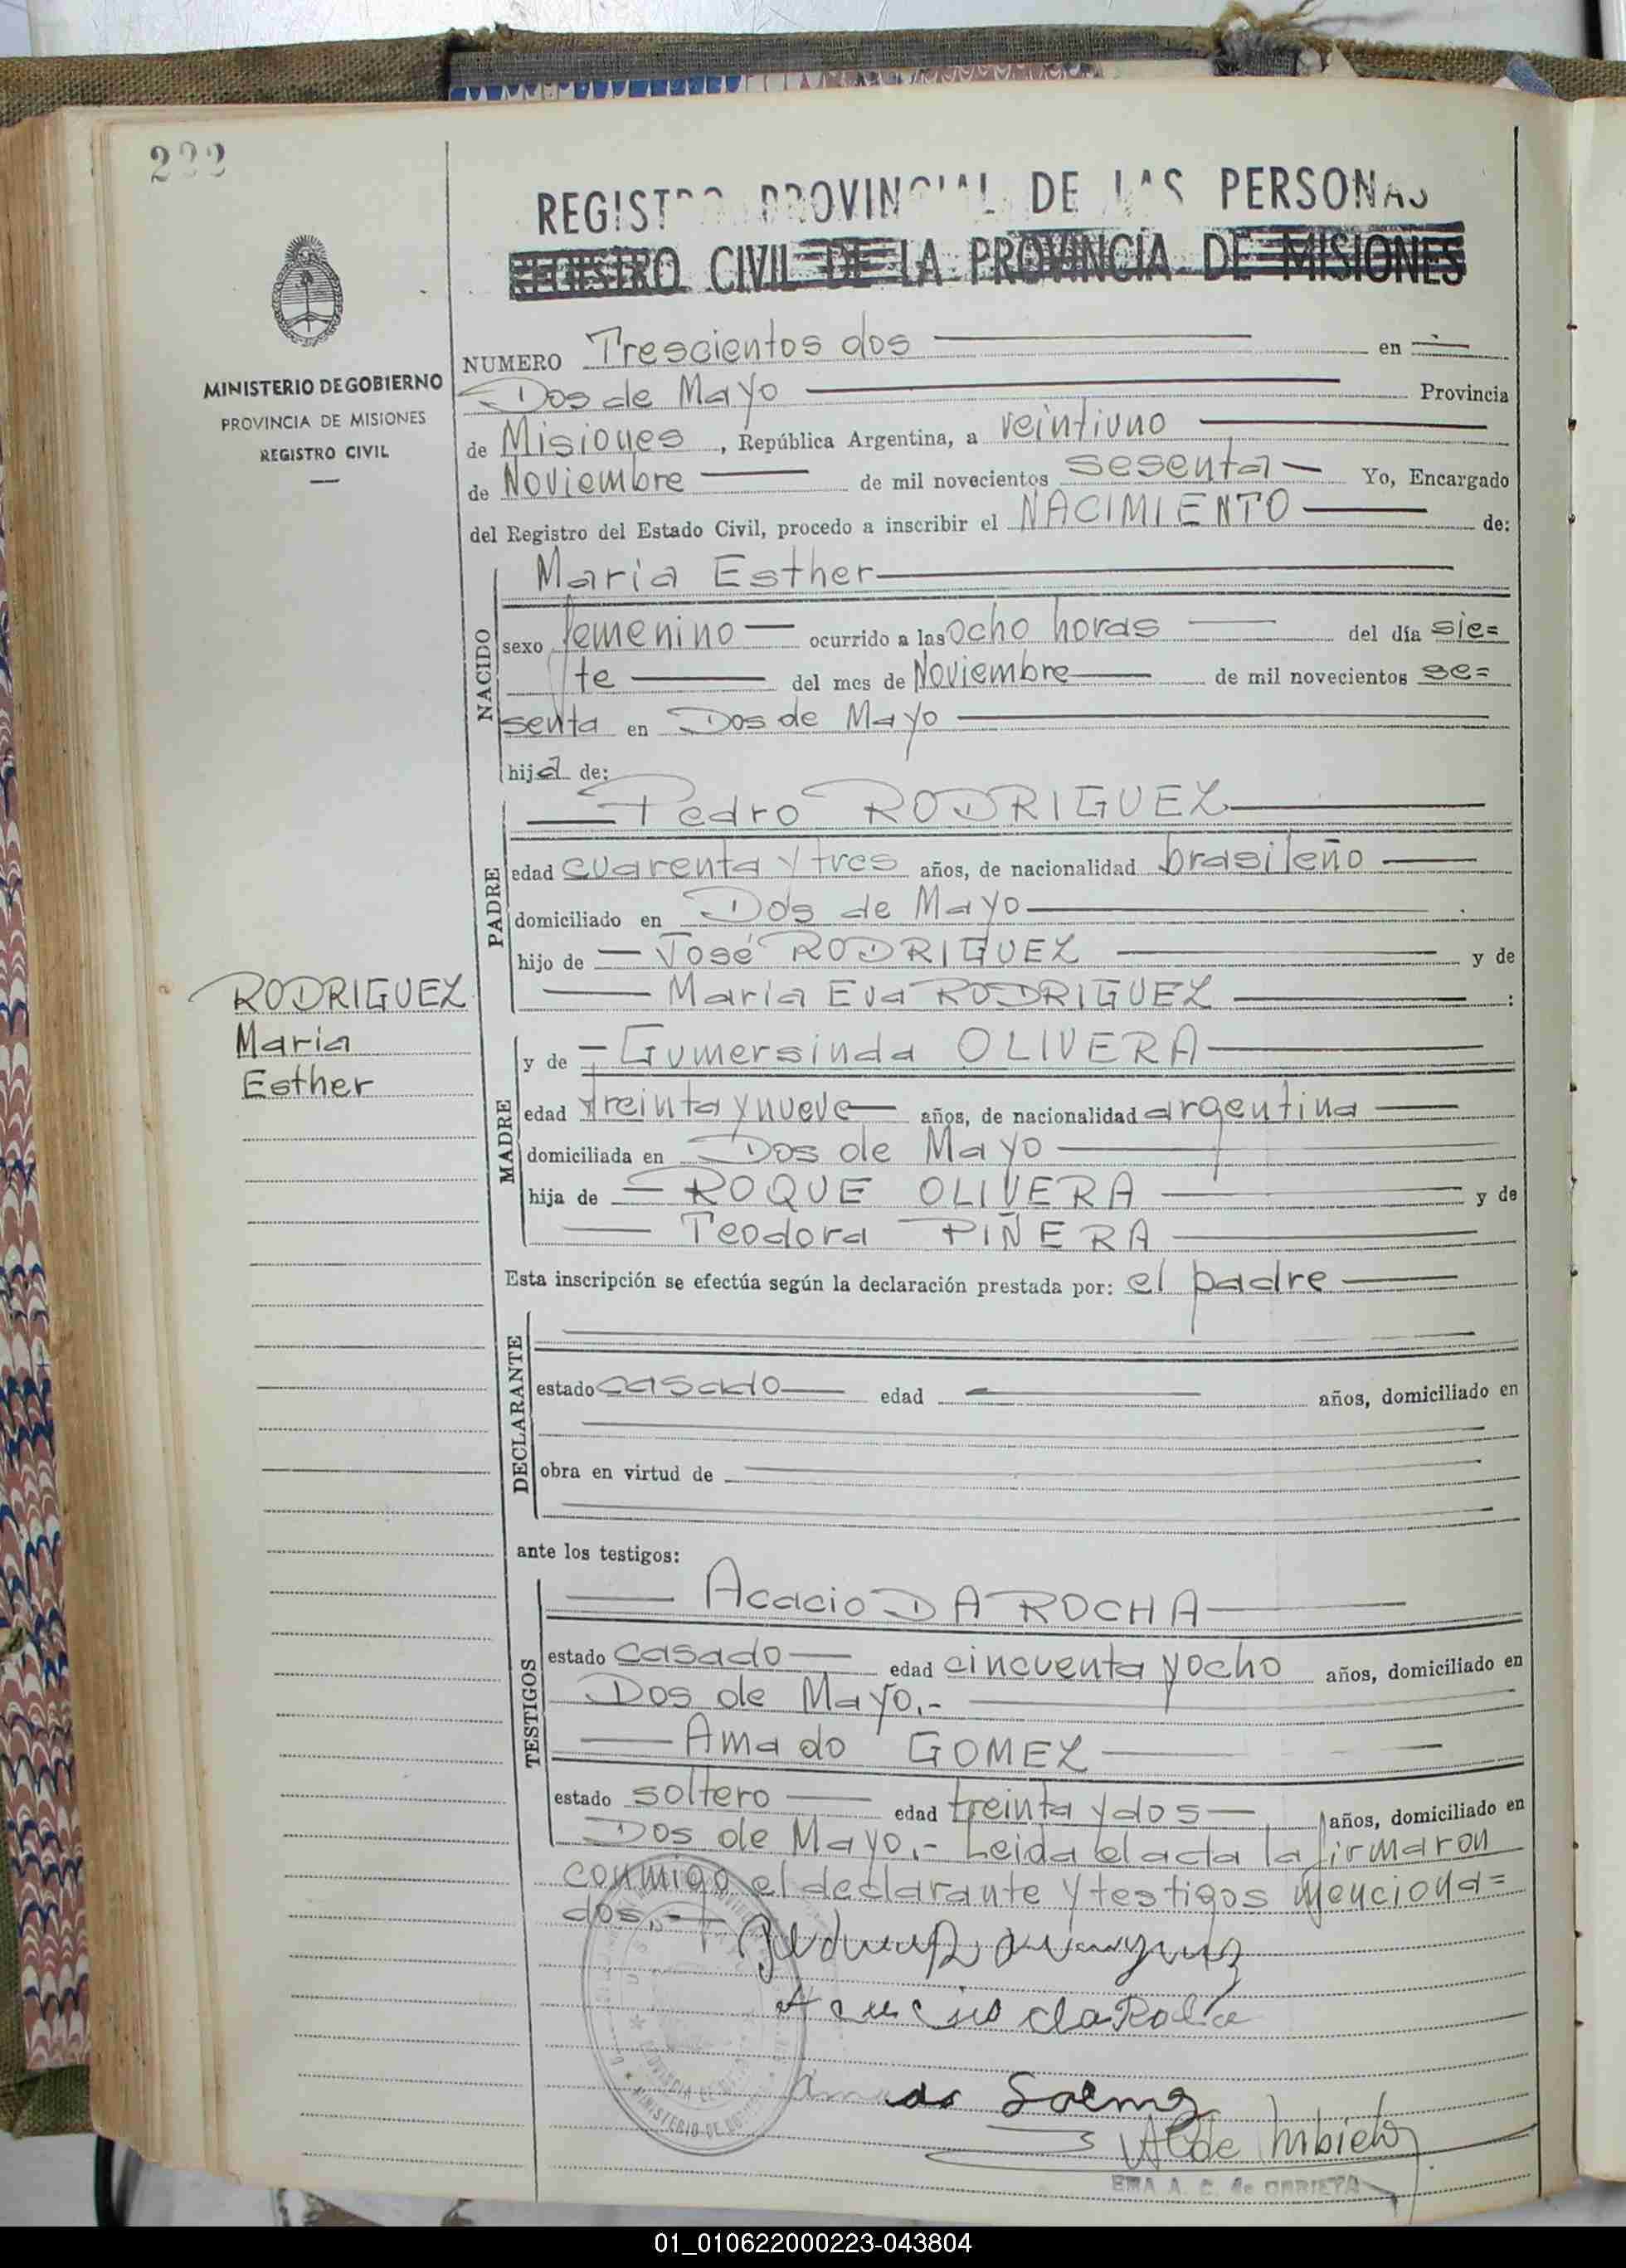 222
REGISTRO PROVINCIAL DE LAS PERSONAS
REGISTRO CIVIL DE LA PROVINCIA DE MISIONES
MINISTERIO DE GOBIERNO
PROVINCIA DE MISIONES
REGISTRO CIVIL
NUMERO Trescientos dos en
Dos de Mayo Provincia
de Misiones, República Argentina, a veintiuno
de Noviembre de mil novecientos sesenta Yo, Encargado
del Registro del Estado Civil, procedo a inscribir el NACIMIENTO de:
NACIDO
Maria Esther
sexo femenino ocurrido a las ocho horas del día sie=
te del mes de Noviembre de mil novecientos se=
senta en Dos de Mayo
hija de:
PADRE
Pedro RODRIGUEZ
edad cuarenta y tres años, de nacionalidad brasileño
domiciliado en Dos de Mayo
hijo de José RODRIGUEZ y de
Maria Eva RODRIGUEZ :
RODRIGUEZ
Maria
Esther
MADRE
y de Gumersinda OLIVERA
edad treinta y nueve años, de nacionalidad argentina
domiciliada en Dos de Mayo
hija de ROQUE OLIVERA y de
Teodora PIÑERA
Esta inscripción se efectúa según la declaración prestada por: el padre
DECLARANTE
estado casado edad años, domiciliado en
obra en virtud de
ante los testigos:
TESTIGOS
Acacio DA ROCHA
estado casado edad cincuenta y ocho años, domiciliado en
Dos de Mayo.-
Amado GOMEZ
estado soltero edad treinta y dos años, domiciliado en
Dos de Mayo.- Leida el acta la firmaron
conmigo el declarante y testigos menciona=
dos.-
Acacio da Rocha
EMA A. C. de URRIETA
01_010622000223-043804